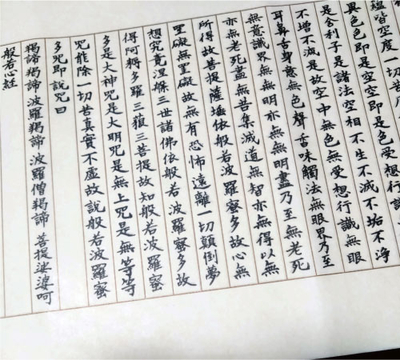 蘊皆空度一切苦
異色色即是空空即是色受想行
是舍利子是諸法空相不生不滅不垢不淨
不增不減是故空中無色無受想行識無眼
耳鼻舌身意無色聲香味觸法無眼界乃至
無意識界無無明亦無無明盡乃至無老死
亦無老死盡無苦集滅道無智亦無得以無
所得故菩提薩埵依般若波羅蜜多故心無
罣礙無罣礙故無有恐怖遠離一切顛倒夢
想究竟涅槃三世諸佛依般若波羅蜜多故
得阿耨多羅三藐三菩提故知般若波羅蜜
多是大神咒是大明咒是無上咒是無等等
咒能除一切苦真實不虛故說般若波羅蜜
多咒即說咒曰
羯諦羯諦波羅羯諦波羅僧羯諦菩提娑婆呵
般若心經